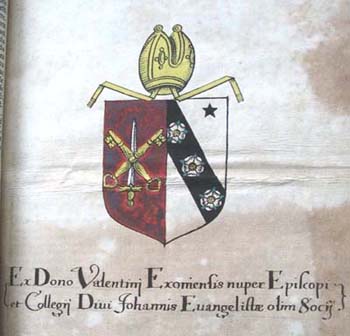 Ex Dono Valentinj Exoniensis nuper Episcopi
et Collegij Divi Johannis Evangelistæ olim Socij